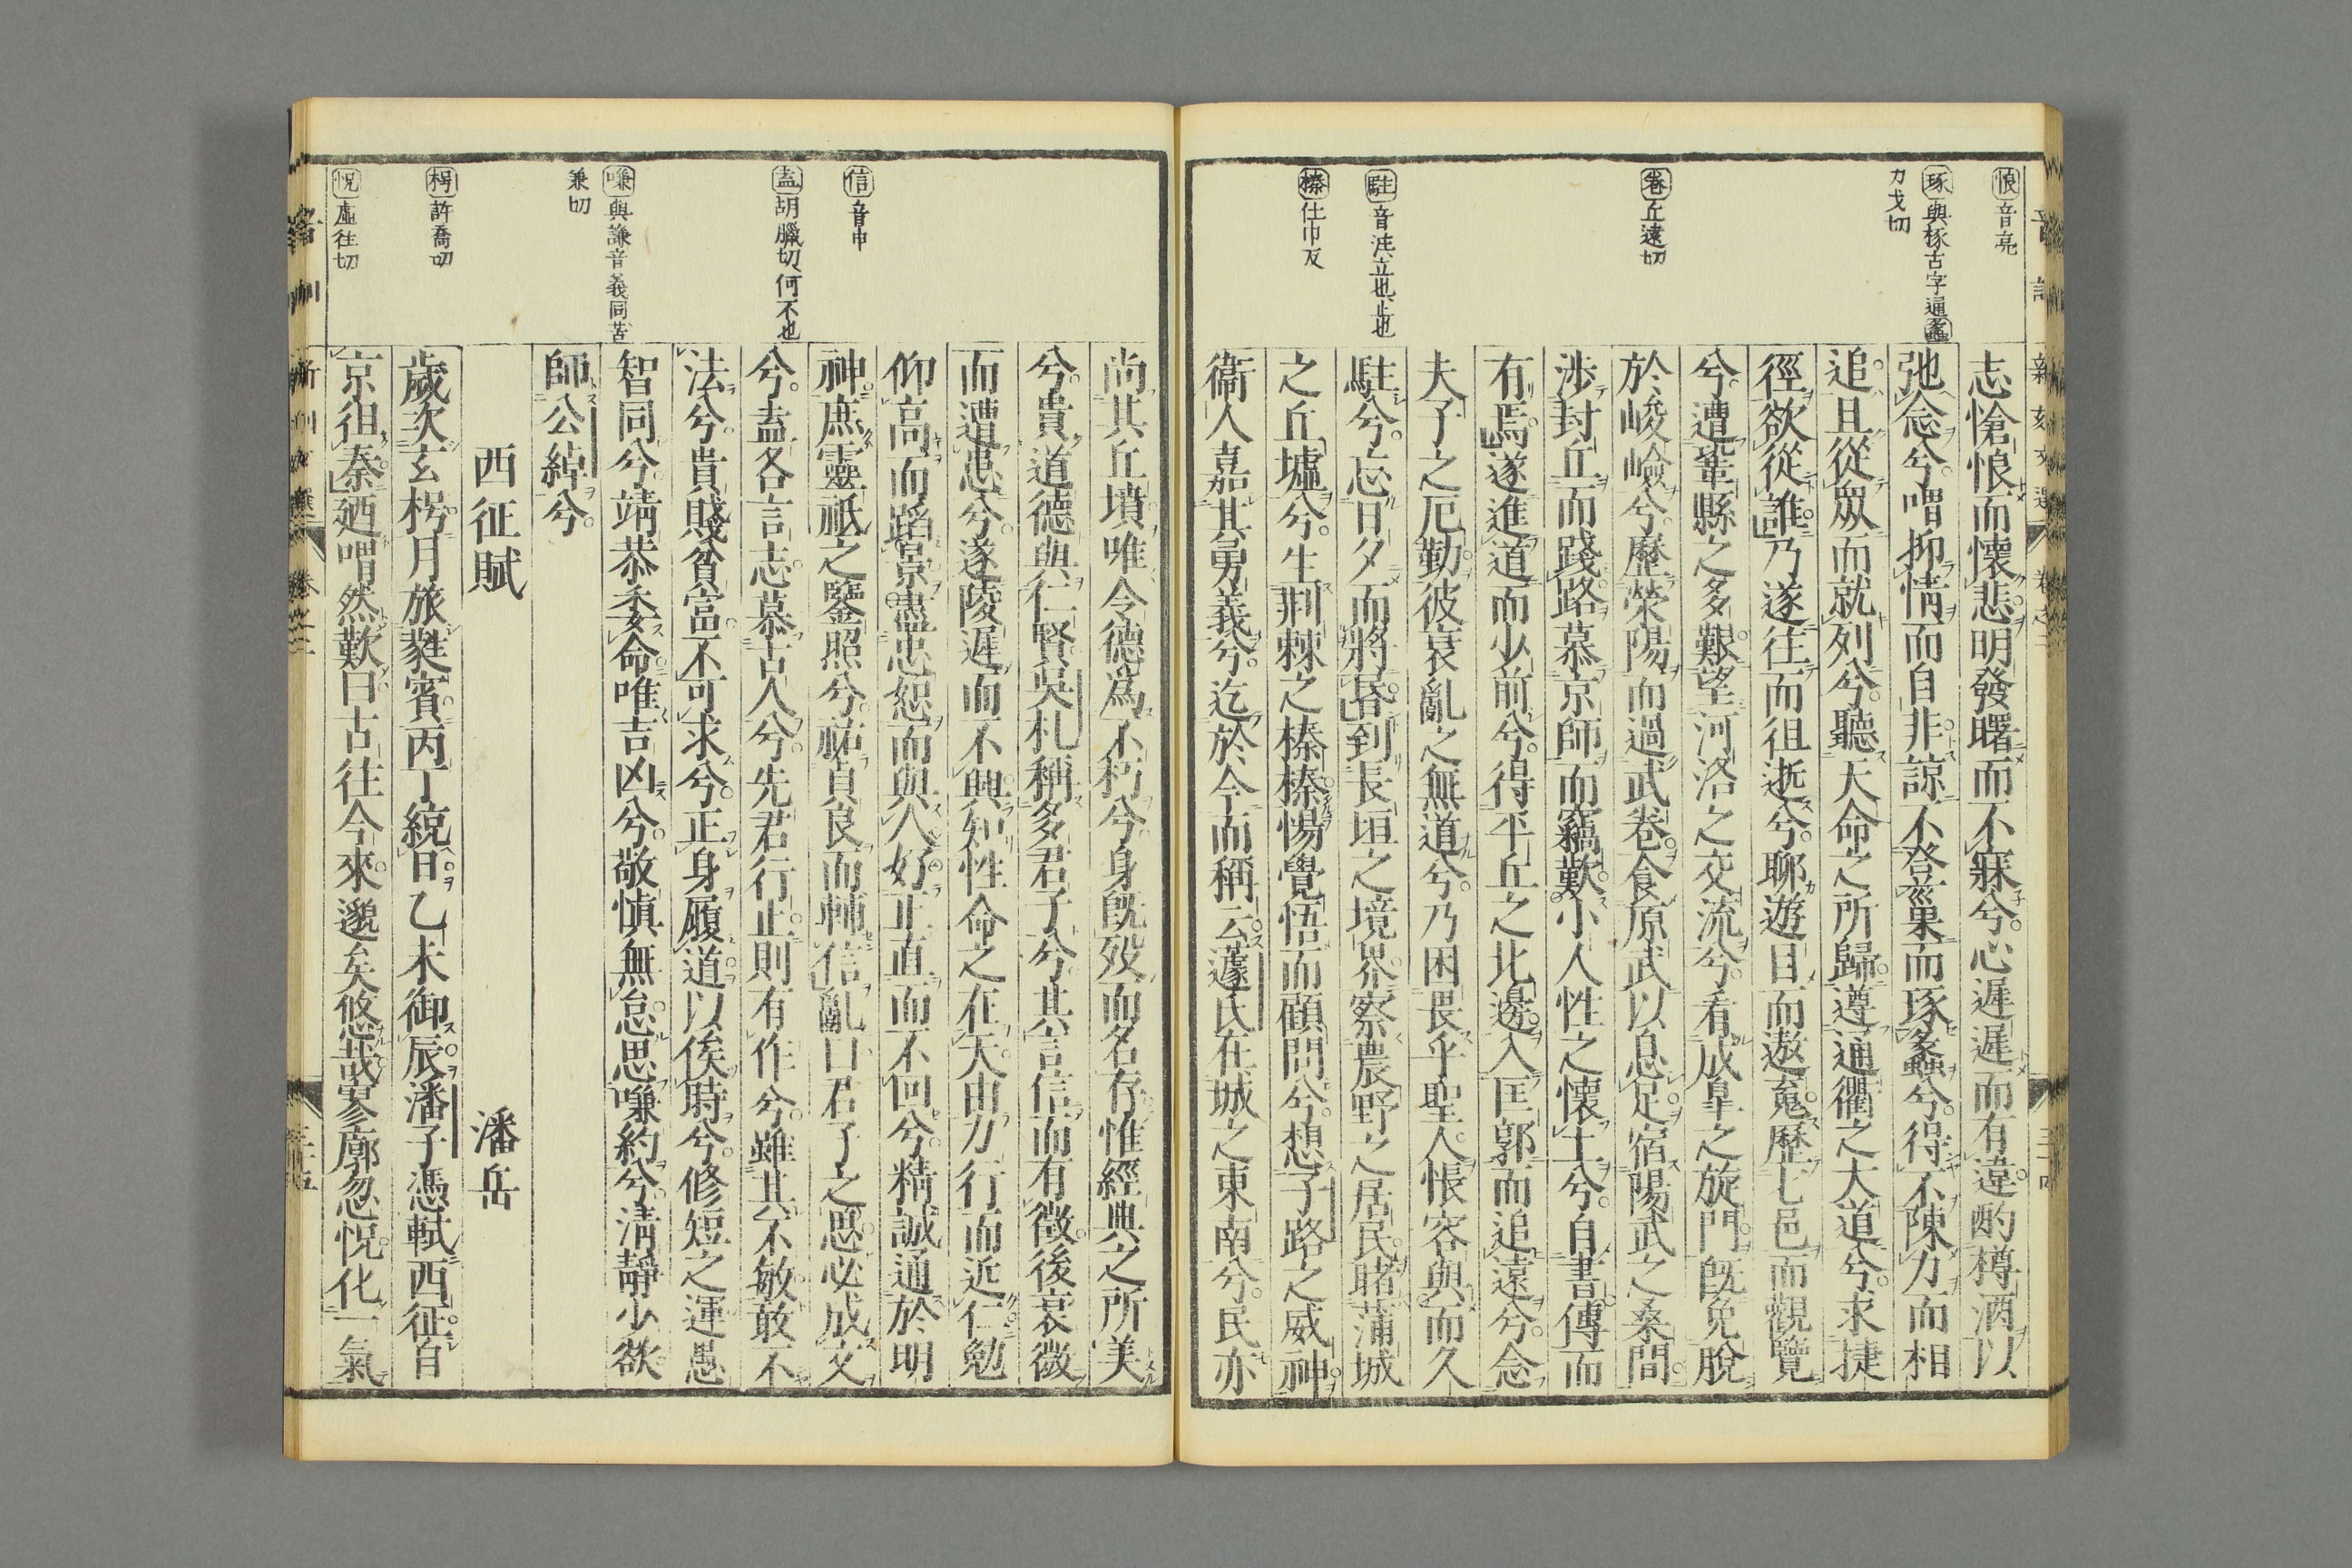 悢音亮
琢與椓古字通蠡
力戈切
卷丘遠切
駐音注立也止也
榛仕巾反
志愴悢而懷悲明發曙而不寐兮心遲遲而有違酌樽酒以
弛念兮喟抑情而自非諒不登巢而琢蠡兮得不陳力而相
追且從眾而就列兮聽天命之所歸遵通衢之大道兮求捷
徑欲從誰乃遂往而徂逝兮聊遊目而遨䰟歷七邑而觀覽
兮遭鞏縣之多艱望河洛之交流兮看成皐之旋門既免脫
於峻嶮兮歷滎陽而過武卷食原武以息足宿陽武之桑間
涉封丘而踐路慕京師而竊歎小人性之懷土兮自書傳而
有焉遂進道而少前兮得平丘之北邊入匡郭而追遠兮念
夫子之厄勤彼衰亂之無道兮乃困畏乎聖人悵容與而久
駐兮忘日夕而將昏到長垣之境界察農野之居民睹蒲城
之丘墟兮生荆棘之榛榛惕覺悟而顧問兮想子路之威神
衞人嘉其勇義兮迄於今而稱云蘧氏在城之東南兮民亦
信音申
盍胡臘切何不也
嗛與謙音義同苦
兼切
枵許喬切
怳虛往切
尚其丘墳唯令德爲不朽兮身既歿而名存惟經典之所美
兮貴道德與仁賢吳札稱多君子兮其言信而有徵後衰微
而遭患兮遂陵遲而不興知性命之在天由力行而近仁勉
仰高而蹈景盡忠恕而與人好正直而不回兮精誠通於明
神庶靈祇之鑒照兮祐貞良而輔信亂曰君子之思必成文
兮盍各言志慕古人兮先君行止則有作兮雖其不敏敢不
法兮貴賤貧富不可求兮正身履道以俟時兮修短之運愚
智同兮靖恭委命唯吉凶兮敬慎無怠思嗛約兮清靜少欲
師公綽兮
西征賦　潘岳
歲次玄枵月旅蕤賓丙丁統日乙未御辰潘子憑軾西征自
京徂秦廼喟然歎曰古往今來邈矣悠哉寥廓忽怳化一氣